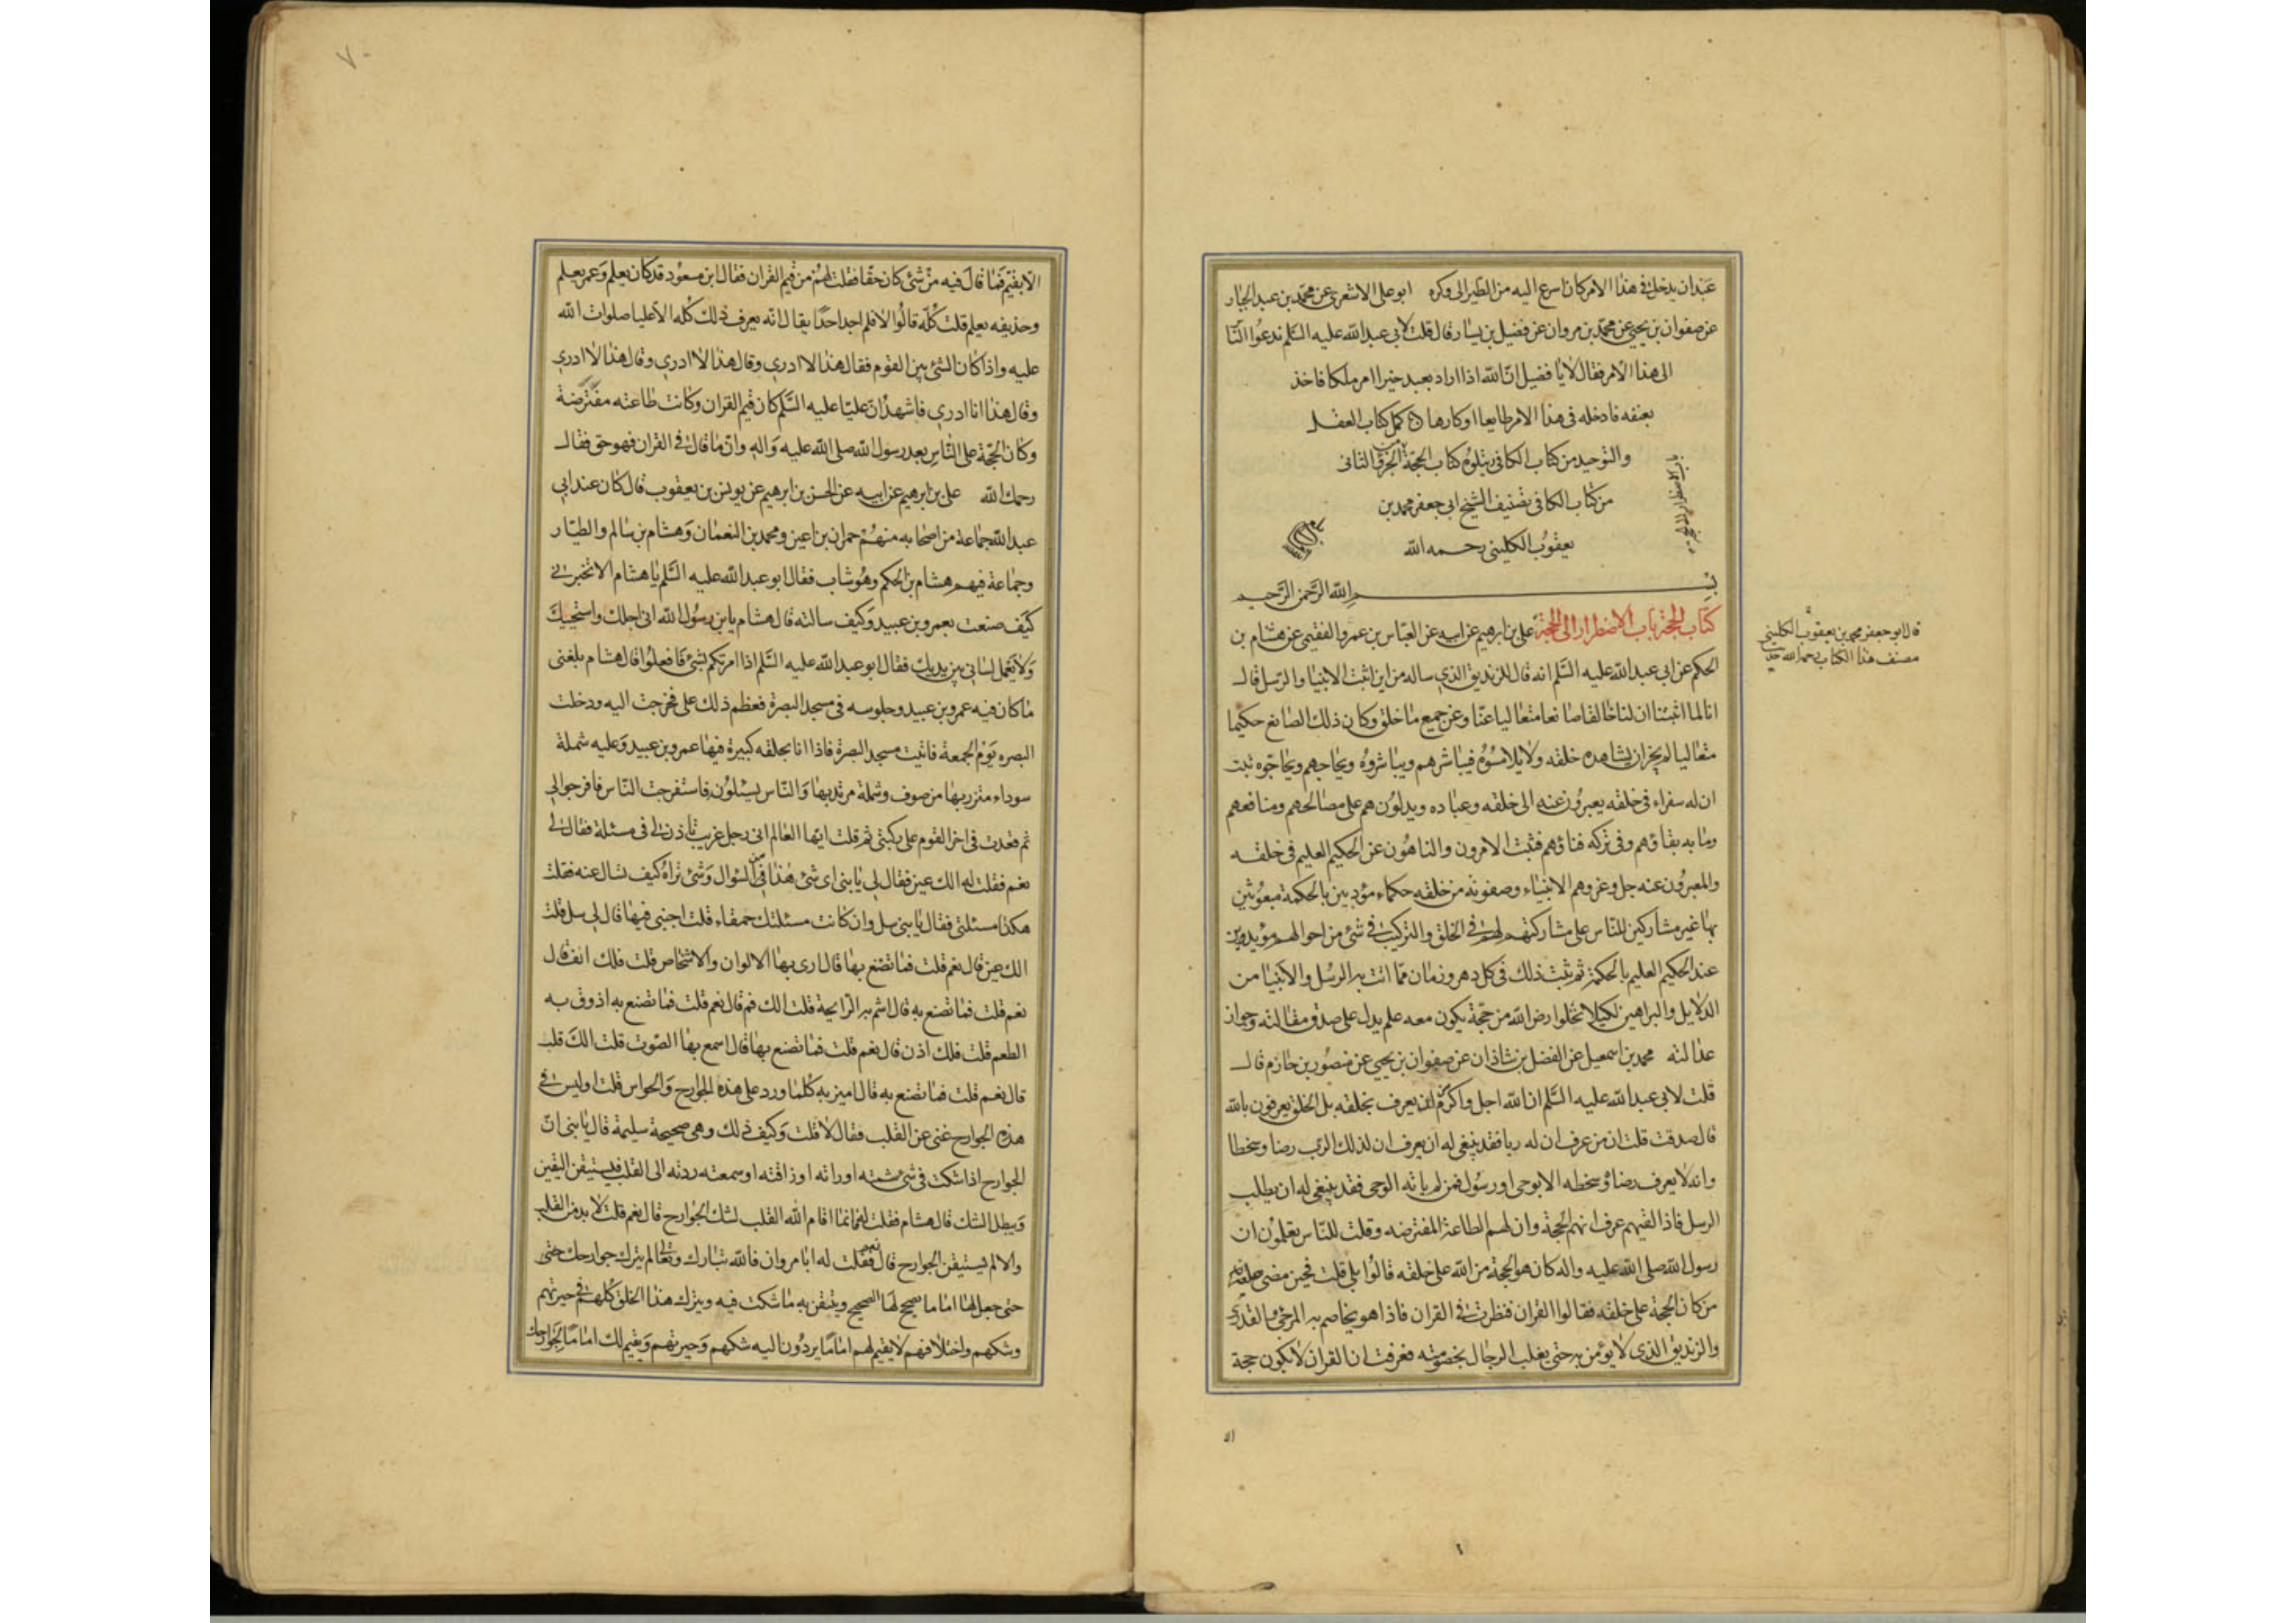 عبدان يدخل في هذا الامر كان اسرع اليه من الطير الى وكره ابو على الاشعرى عن محمد بن عبد الجبار
عن صفوان بن يحيى عن محمد بن مروان عن فضيل بن يسار قال قلت لابى عبد الله عليه السلم ندعوا الناس
الى هذا الامر فقال لا يا فضيل ان الله اذا اراد بعبد خيرا امر ملكا فاخذ
بعنقه فادخله فى هذا الامر طايعا او كارها كمل كتاب العقل
والتوحيد من كتاب الكافى ويتلوه كتاب الحجة الجزء الثانى
من كتاب الكافى تصنيف الشيخ ابى جعفر محمد بن
يعقوب الكلينى رحمه الله
باب الاضطرار الى الحجة
بسم الله الرحمن الرحيم
كتاب الحجة باب الاضطرار الى الحجة على بن ابرهيم عن ابيه عن العباس بن عمرو الفقيمى عن هشام بن
قال ابو جعفر محمد بن يعقوب الكلينى
مصنف هذا الكتاب رحمه الله
الحكم عن ابى عبد الله عليه السلم انه قال للزنديق الذى ساله من اين اثبت الانبيا والرسل قال
انا لما اثبتنا ان لنا خالقا صانعا متعاليا عنا وعن جميع ما خلق وكان ذلك الصانع حكيما
متعاليا لم يجز ان يشاهده خلقه ولا يلامسوه فيباشرهم ويباشروه ويحاجهم ويحاجوه ثبت
ان له سفراء فى خلقه يعبرون عنه الى خلقه وعباده ويدلونهم على مصالحهم ومنافعهم
وما به بقاؤهم وفى تركه فناؤهم فثبت الامرون والناهون عن الحكيم العليم فى خلقه
والمعبرون عنه جل وعز وهم الانبياء وصفوته من خلقه حكماء مؤدبين بالحكمة مبعوثين
بها غير مشاركين للناس على مشاركتهم لهم فى الخلق والتركيب فى شئ من احوالهم مؤيدين
عند الحكيم العليم بالحكمة ثم ثبت ذلك فى كل دهر وزمان مما اتت به الرسل والانبيا من
الدلايل والبراهين لكيلا تخلوا ارض الله من حجة يكون معه علم يدل على صدق مقالته وجواز
عدالته محمد بن اسمعيل عن الفضل بن شاذان عن صفوان بن يحيى عن منصور بن حازم قال
قلت لابى عبد الله عليه السلم ان الله اجل واكرم من ان يعرف بخلقه بل الخلق يعرفون بالله
قال صدقت قلت ان من عرف ان له ربا فقد ينبغى له ان يعرف ان لذلك الرب رضا وسخطا
وانه لا يعرف رضاه وسخطه الا بوحى او رسول فمن لم ياته الوحى فقد ينبغى له ان يطلب
الرسل فاذا لقيهم عرف انهم الحجة وان لهم الطاعة المفترضه وقلت للناس تعلمون ان
رسول الله صلى الله عليه واله كان هو الحجة من الله على خلقه قالوا بلى قلت فحين مضى صلى الله عليه
من كان الحجة على خلقه فقالوا القران فنظرت فى القران فاذا هو يخاصم به المرجى والقدرى
والزنديق الذى لا يؤمن به حتى يغلب الرجال بخصومته فعرفت ان القران لا يكون حجة
الا
٧٠
الا بقيم فما قال فيه من شئ كان حقا فقلت لهم من قيم القران فقال ابن مسعود قد كان يعلم وعمر يعلم
وحذيفه يعلم قلت كله قالوا لا فلم اجد احدا يقال انه يعرف ذلك كله الا عليا صلوات الله
عليه واذا كان الشئ بين القوم فقال هذا لا ادرى وقال هذا لا ادرى وقال هذا لا ادرى
وقال هذا انا ادرى فاشهد ان عليا عليه السلم كان قيم القران وكانت طاعته مفترضة
وكان الحجة على الناس بعد رسول الله صلى الله عليه واله وان ما قال فى القران فهو حق فقال
رحمك الله على بن ابرهيم عن ابيه عن الحسن بن ابرهيم عن يونس بن يعقوب قال كان عند ابى
عبد الله جماعة من اصحابه منهم حمران بن اعين ومحمد بن النعمان وهشام بن سالم والطيار
وجماعة فيهم هشام بن الحكم وهو شاب فقال ابو عبد الله عليه السلم يا هشام الا تخبرنى
كيف صنعت بعمرو بن عبيد وكيف سالته قال هشام يا بن رسول الله انى اجلك واستحييك
ولا يعمل لسانى بين يديك فقال ابو عبد الله عليه السلم اذا امرتكم بشئ فافعلوا قال هشام بلغنى
ما كان فيه عمرو بن عبيد وجلوسه فى مسجد البصرة فعظم ذلك على فخرجت اليه ودخلت
البصره يوم الجمعة فاتيت مسجد البصرة فاذا انا بحلقه كبيرة فيها عمرو بن عبيد وعليه شملة
سوداء متزر بها من صوف وشملة مرتد بها والناس يسئلونه فاستفرجت الناس فافرجوا لى
ثم قعدت فى اخر القوم على ركبتى ثم قلت ايها العالم انى رجل غريب تاذن لى فى مسئلة فقال لى
نعم فقلت له الك عين فقال لى يا بنى اى شئ هذا من السؤال وشئ تراه كيف تسال عنه فقلت
هكذا مسئلتى فقال يا بنى سل وان كانت مسئلتك حمقاء قلت اجبنى فيها قال لى سل قلت
الك عين قال نعم قلت فما تصنع بها قال ارى بها الالوان والاشخاص قلت فلك انف قال
نعم قلت فما تصنع به قال اشم به الرايحة قلت الك فم قال نعم قلت فما تصنع به اذوق به
الطعم قلت فلك اذن قال نعم قلت فما تصنع بها قال اسمع بها الصوت قلت الك قلب
قال نعم قلت فما تصنع به قال اميز به كلما ورد على هذه الجوارح والحواس قلت اوليس فى
هذه الجوارح غنى عن القلب فقال لا قلت وكيف ذلك وهى صحيحة سليمة قال يا بنى ان
الجوارح اذا شكت فى شئ شمته او راته او ذاقته او سمعته ردته الى القلب فيستيقن اليقين
ويبطل الشك قال هشام فقلت له فانما اقام الله القلب لشك الجوارح قال نعم قلت لا بد من القلب
والا لم يستيقن الجوارح قال نعم فقلت له ابا مروان فالله تبارك وتعالى لم يترك جوارحك حتى
حتى جعل لها اماما يصحح لها الصحيح ويتيقن به ما شكت فيه ويترك هذا الخلق كلهم فى حيرتهم
وشكهم واختلافهم لا يقيم لهم اماما يردون اليه شكهم وحيرتهم ويقيم لك اماما لجوارحك